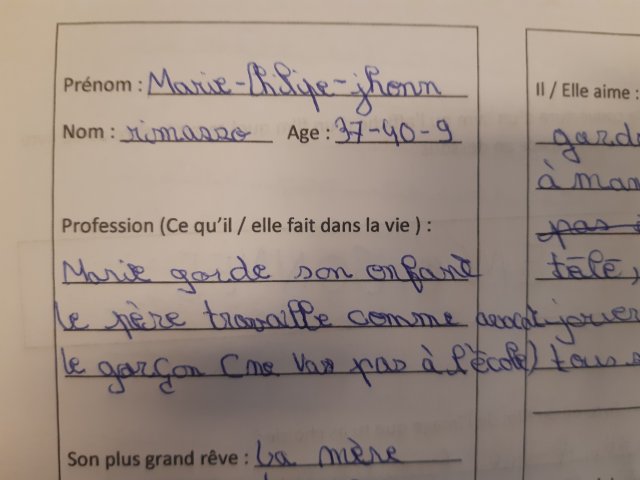 Prénom : Marie-Philipe-jhonn
Nom : rimasso Age : 37-40-9
Profession (Ce qu'il / elle fait dans la vie ) :
Marie garde son enfant
le père travaille comme avocat
le garçon (ne vas pas à l'école)
Son plus grand rêve : La mère
Il / Elle aime :
gard
à man
pas
télé,
jouer
tous